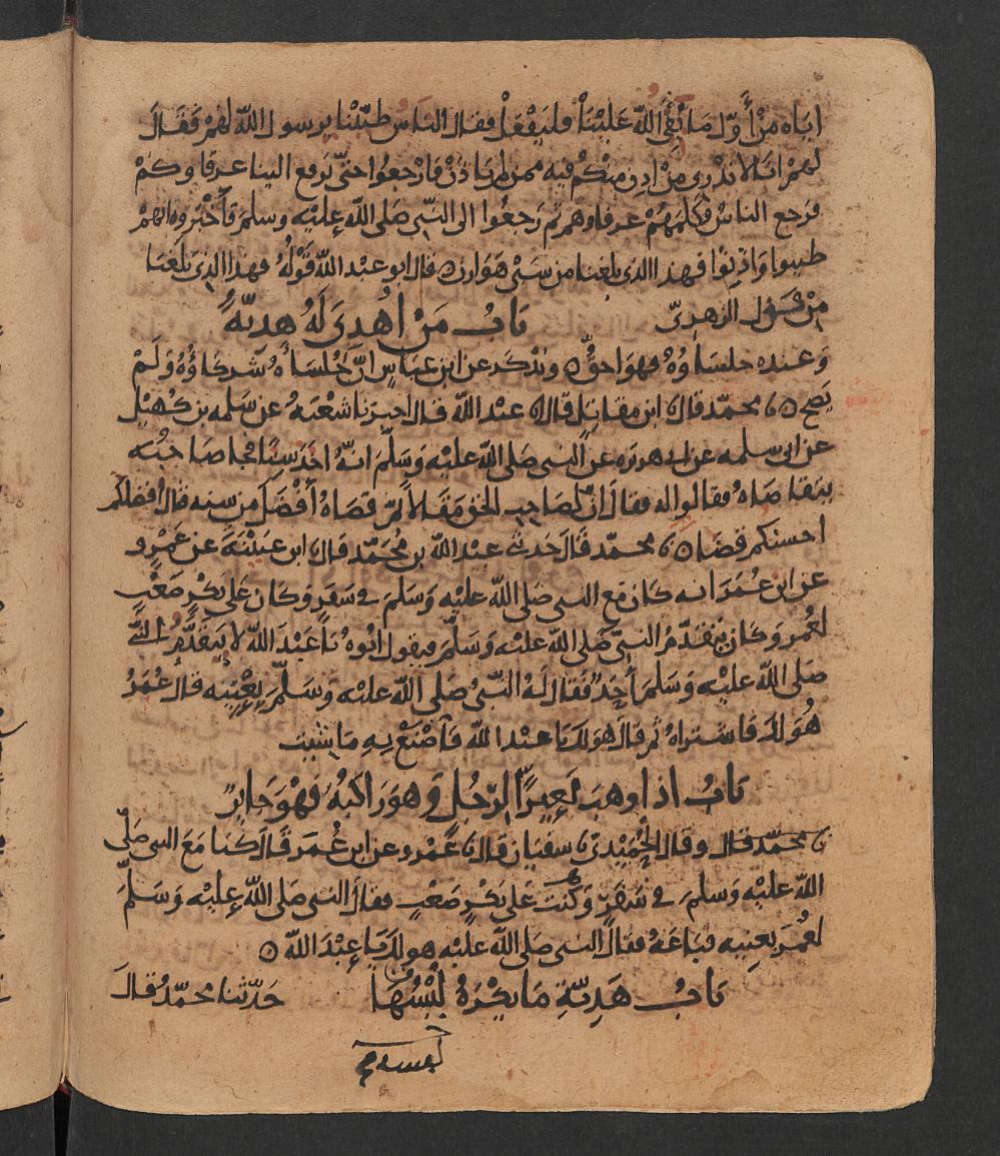 اياه من أول ما يفئ الله علينا فليفعل فقال الناس طيبنا يرسول الله لهم فقال
لهم انا لا ندري من اذن منكم فيه ممن لم ياذن فارجعوا حتى يرفع الينا عرفاوكم
فرجع الناس فكلمهم عرفاوهم ثم رجعوا الى النبي صلى الله عليه وسلم فأخبروه انهم
طيبوا واذنوا فهذا الذي بلغنا من سبي هوازن ه قال ابو عبد الله قوله فهذا الذي بلغنا
من قول الزهري باب من اهدي له هدية
وعنده جلساؤه فهو احق ه ويذكر عن ابن عباس ان جلساه شركاؤه ولم
يصح ه محمد قال ابن مقاتل قال عبد الله قال اخبرنا شعبة عن سلمه بن كهيل
عن ابي سلمه عن ابي هريره عن النبي صلى الله عليه وسلم انه اخذ سنا فجا صاحبه
يتقاضاه فقالوا له فقال ان لصاحب الحق مقالا ثم قضاه أفضل من سنه قال افضلكم
احسنكم قضا ه محمد قال حدثني عبد الله بن محمد قال ابن عيينة عن عمرو
عن ابن عمر انه كان مع النبي صلى الله عليه وسلم في سفر وكان على بكر صعب
لعمر وكان يتقدم النبي صلى الله عليه وسلم فيقول ابوه يا عبد الله لا يتقدم النبي
صلى الله عليه وسلم أحد فقال له النبي صلى الله عليه وسلم بعنيه قال عمر
هو لك فاشتراه ثم قال هو لك يا عبد الله فاصنع به ما شيت
باب اذا وهب بعيرا لرجل وهو راكبه فهو جايز
محمد قال وقال الحميدي سفيان قال عمرو عن ابن عمر قال كنا مع النبي صلى
الله عليه وسلم في سفر وكنت على بكر صعب فقال النبي صلى الله عليه وسلم
لعمر بعنيه فباعه فقال النبي صلى الله عليه هو لك يا عبد الله ه
باب هدية ما يكره لبسها حدثنا محمد قال